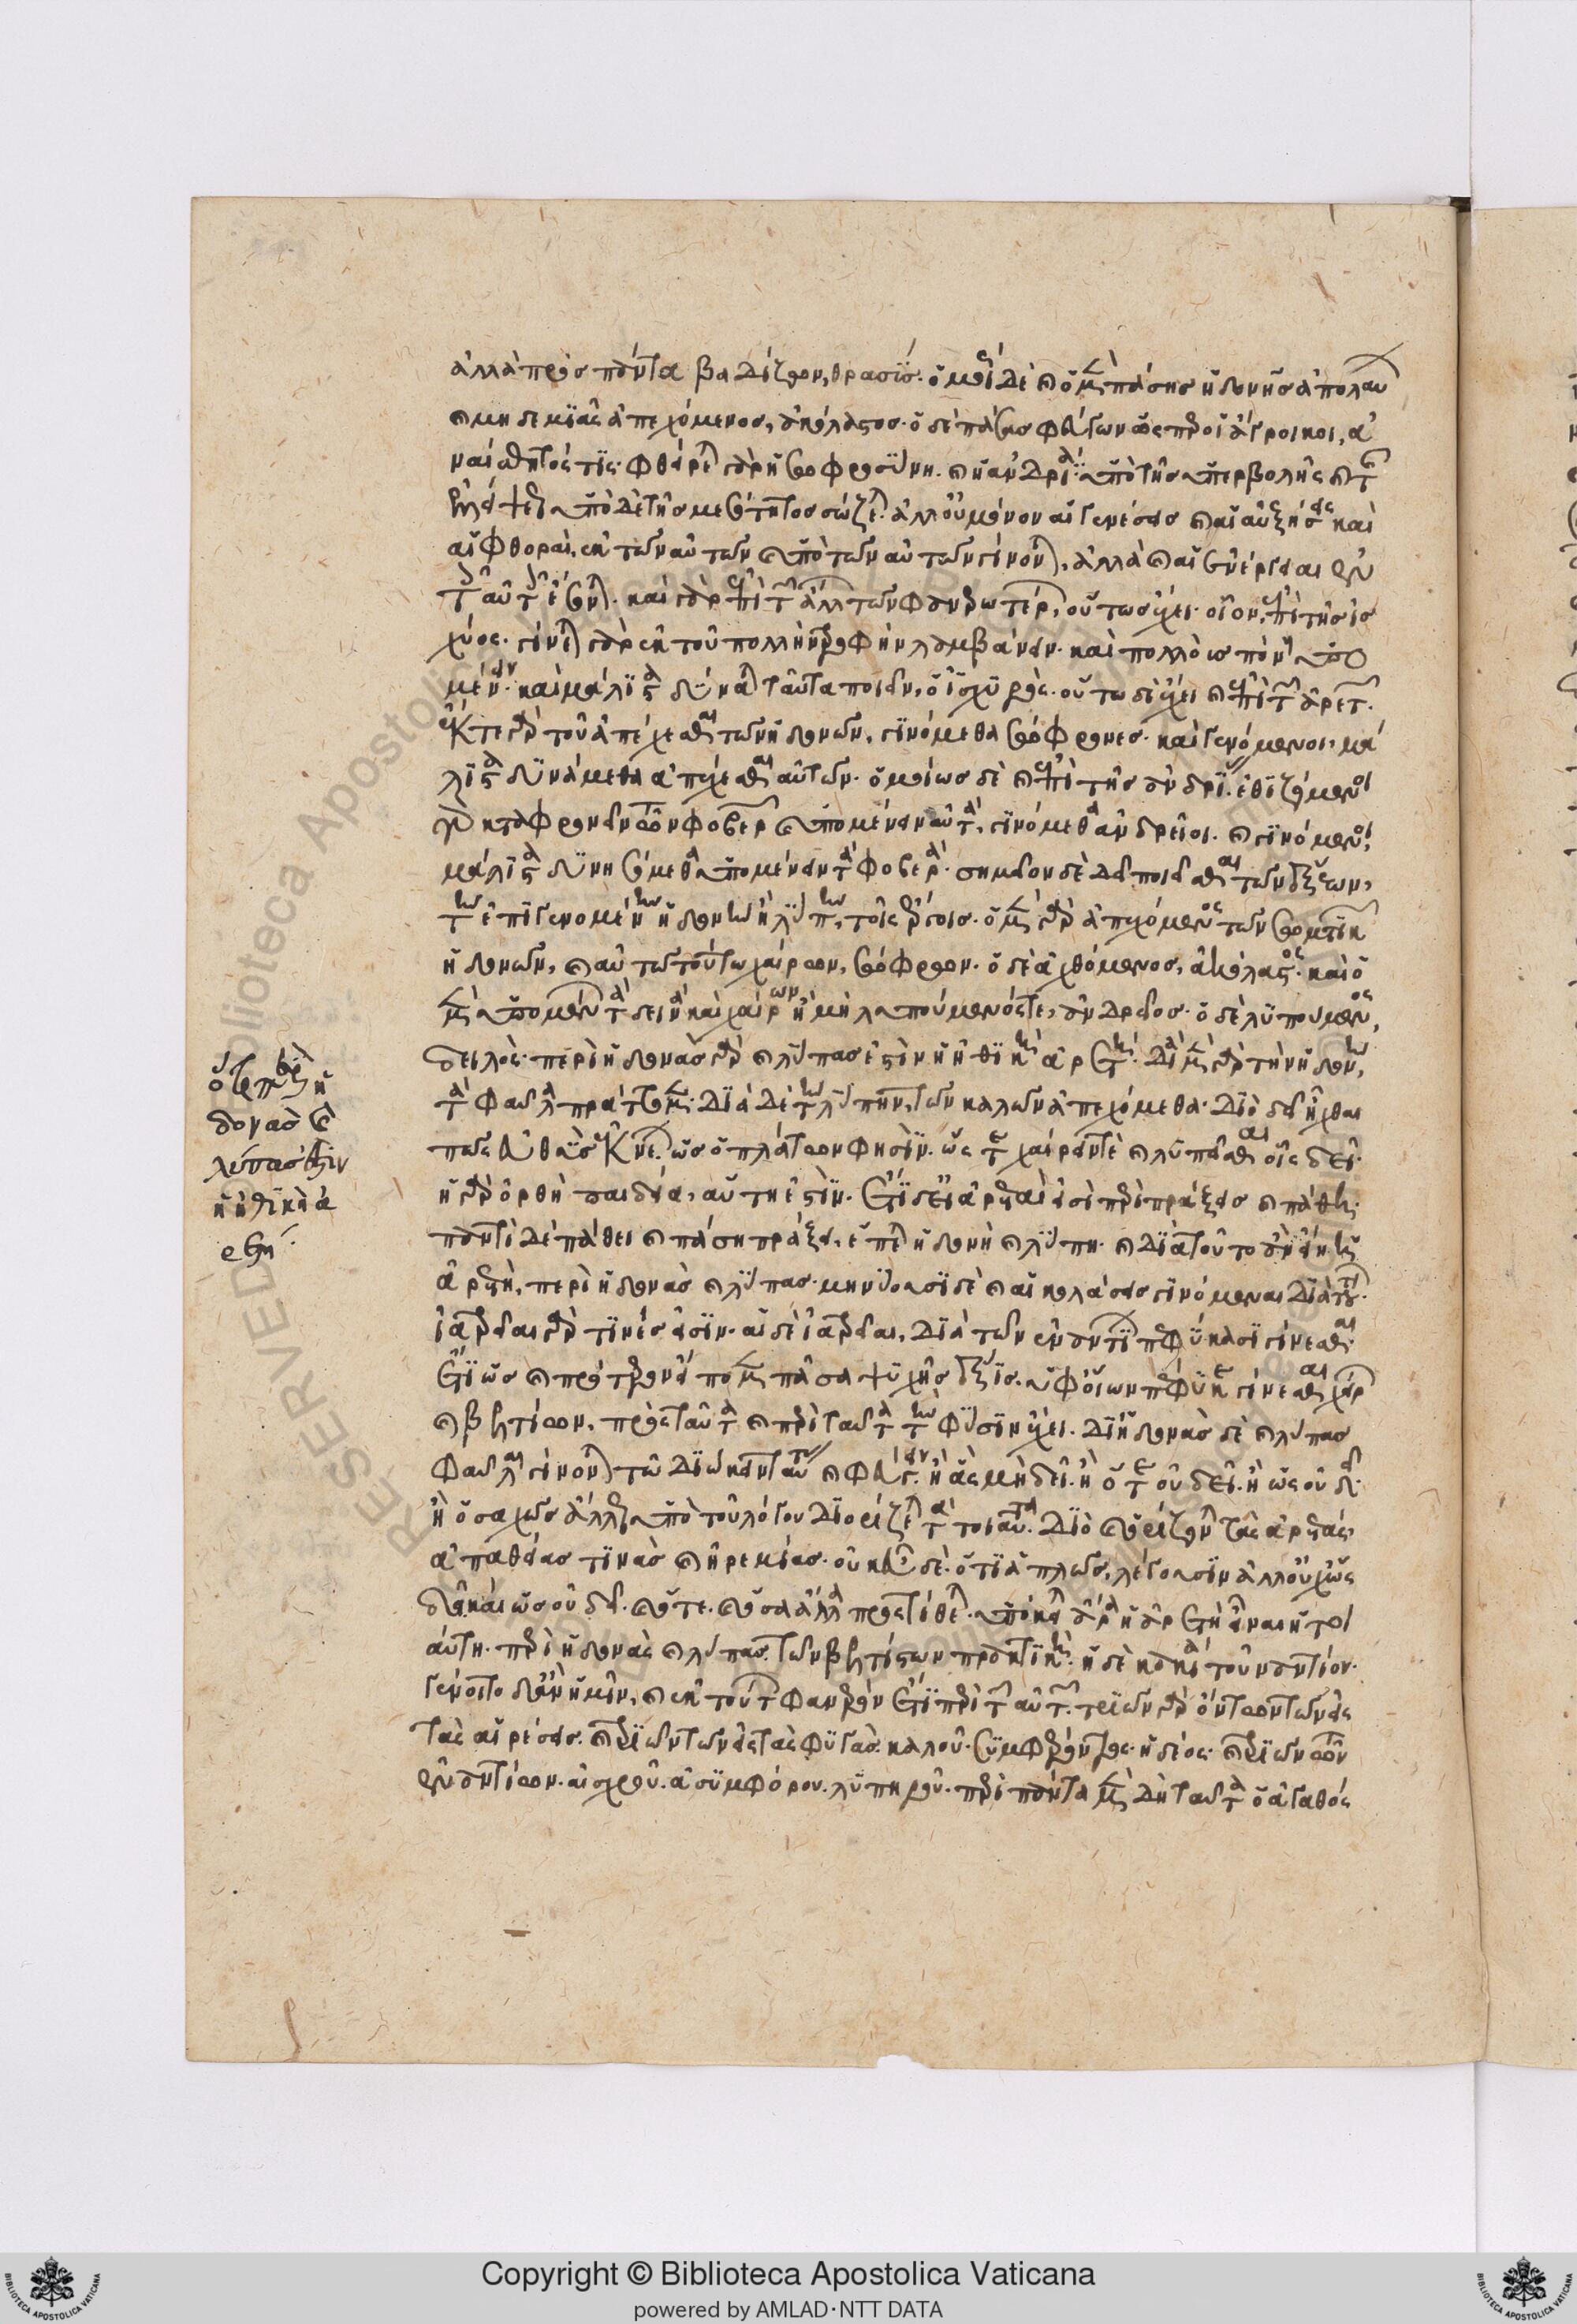 ἀλλὰ πρὸς πάντα βαδίζων, θρασύς. ὁμοίως δὲ καὶ ὁ μὲν πάσης ἡδονῆς ἀπολαύων
καὶ μηδεμιᾶς ἀπεχόμενος, ἀκόλαστος. ὁ δὲ πάσας φεύγων ὥσπερ οἱ ἄγροικοι, ἀ
ναίσθητός τις. φθείρεται γὰρ ἡ σωφροσύνη καὶ ἡ ἀνδρία ὑπὸ τῆς ὑπερβολῆς καὶ τῆς
ἐλλείψεως ὑπὸ δὲ τῆς μεσότητος σώζεται. ἀλλ' οὐ μόνον αἱ γενέσεις καὶ αἱ αὐξήσεις καὶ
αἱ φθοραὶ, ἐκ τῶν αὐτῶν καὶ ὑπὸ τῶν αὐτῶν γίνονται, ἀλλὰ καὶ αἱ ἐνέργειαι ἐν
τοῖς αὐτοῖς ἔσονται. καὶ γὰρ ἐπὶ τῶν ἄλλων τῶν φανερωτέρων, οὕτως ἔχει. οἷον, ἐπὶ τῆς ἰσ
χύος. γίνεται γὰρ ἐκ τοῦ πολλὴν τροφὴν λαμβάνειν. καὶ πολλοὺς πόνους ὑπο
μένειν. καὶ μάλιστα δύναται ταῦτα ποιεῖν, ὁ ἰσχυρός. οὕτω δ' ἔχει καὶ ἐπὶ τῶν ἀρετῶν.
ἔκ τε γὰρ τοῦ ἀπέχεσθαι τῶν ἡδονῶν, γινόμεθα σώφρονες. καὶ γενόμενοι, μά
λιστα δυνάμεθα ἀπέχεσθαι αὐτῶν. ὁμοίως δὲ καὶ ἐπὶ τῆς ἀνδρίας. ἐθιζόμενοι
γὰρ καταφρονεῖν τῶν φοβερῶν καὶ ὑπομένειν αὐτά, γινόμεθα ἀνδρεῖοι. καὶ γινόμενοι,
μάλιστα δυνησόμεθα ὑπομένειν τὰ φοβερά. σημεῖον δὲ δεῖ ποιεῖσθαι τῶν ἕξεων,
τὴν ἐπιγενομένην ἡδονὴν ἢ λύπην, τοῖς ἔργοις. ὁ μὲν γὰρ ἀπεχόμενος τῶν σωματικῶν
ἡδονῶν, καὶ αὐτῷ τούτῳ χαίρων, σώφρων. ὁ δὲ ἀχθόμενος, ἀκόλαστος. καὶ ὁ
μὲν ὑπομένων τὰ δεινὰ καὶ χαίρων ἢ μὴ λυπούμενός γε, ἀνδρεῖος. ὁ δὲ λυπούμενος,
δειλός. περὶ ἡδονὰς γὰρ καὶ λύπας ἐστὶν ἡ ἠθικὴ ἀρετή. διὰ μὲν γὰρ τὴν ἡδονήν,
τὰ φαῦλα πράττομεν. διὰ δὲ τὴν λύπην, τῶν καλῶν ἀπεχόμεθα. διὸ δεῖ ἦχθαί
πως εὐθὺς ἐκ νέων, ὡς ὁ πλάτων φησίν. ὥστε χαίρειν τε καὶ λυπεῖσθαι οἷς δεῖ.
ἡ γὰρ ὀρθὴ παιδεία, αὕτη ἐστίν. ἔτι δ' εἰ ἀρεταί εἰσι περὶ πράξεις καὶ πάθη.
παντὶ δὲ πάθει καὶ πάσῃ πράξει, ἕπεται ἡδονὴ καὶ λύπη. καὶ διὰ τοῦτο ἂν εἴη ἡ
ἀρετὴ, περὶ ἡδονὰς καὶ λύπας. μηνύουσι δὲ καὶ αἱ κολάσεις γινόμεναι διὰ τούτων.
ἰατρεῖαι γάρ τινές εἰσιν. αἱ δὲ ἰατρεῖαι, διὰ τῶν ἐναντίων πεφύκασι γίνεσθαι.
ἔτι ὡς καὶ πρότερον εἴπομεν πᾶσα ψυχῆς ἕξις. ὑφ' οἵων πέφυκε γίνεσθαι χείρων
καὶ βελτίων, πρὸς ταῦτα καὶ περὶ ταῦτα τὴν φύσιν ἔχει. δι' ἡδονὰς δὲ καὶ λύπας
φαῦλαι γίνονται τῷ διώκειν ταύτας καὶ φεύγειν. ἢ ἃς μὴ δεῖ. ἢ ὅτε οὐ δεῖ. ἢ ὡς οὐ δεῖ.
ἢ ὁσαχῶς ἄλλως ὑπὸ τοῦ λόγου διορίζεται τὰ τοιαῦτα. διὸ καὶ ὁρίζονται τὰς ἀρετάς,
ἀπαθείας τινὰς καὶ ἠρεμίας. οὐκ εὖ δέ. ὅτι ἁπλῶς, λέγουσιν ἀλλ' οὐχ ὡς
δεῖ. καὶ ὡς οὐ δεῖ. καὶ ὅτε. καὶ ὅσα ἄλλα προστίθεται. ὑπόκειται ἄρα ἡ ἀρετὴ εἶναι ἡ τοι
αύτη. περὶ ἡδονὰς καὶ λύπας. τῶν βελτίστων πρακτική. ἡ δὲ κακία τοὐναντίον.
γένοιτο δ' ἂν ἡμῖν, καὶ ἐκ τούτων φανερὸν ἔτι περὶ τῶν αὐτῶν. τριῶν γὰρ ὄντων τῶν εἰς
τὰς αἱρέσεις. καὶ τριῶν τῶν εἰς τὰς φυγάς. καλοῦ. συμφέροντος. ἡδέος. καὶ τριῶν τῶν
ἐναντίων. αἰσχροῦ. ἀσυμφόρου. λυπηροῦ. περὶ πάντα μὲν δὴ ταῦτα ὁ ἀγαθὸς
ὅτι περὶ ἡ
δονὰς καὶ
λύπας ἐστὶν
ἡ ἠθικὴ ἀ
ρετή.
Copyright © Biblioteca Apostolica Vaticana
powered by AMLAD·NTT DATA